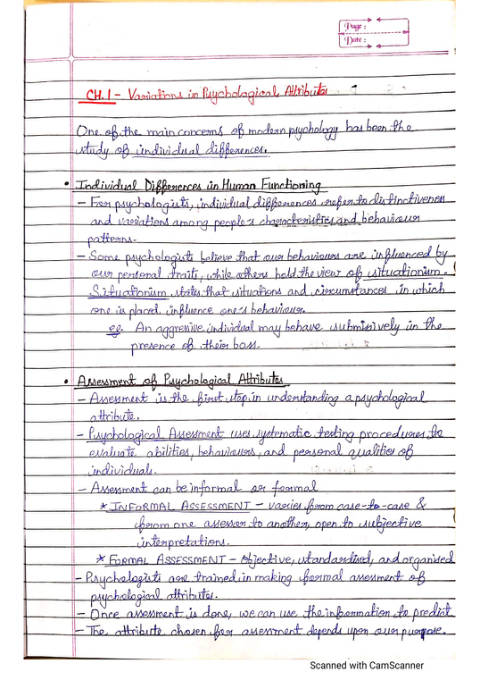 Page :
Date :
CH.1 - Variations in Psychological Attributes
One of the main concerns of modern psychology has been the
study of individual differences.
• Individual Differences in Human Functioning
- For psychologists, individual differences refer to distinctiveness
and variations among people's characteristics and behaviour
patterns.
- Some psychologists believe that our behaviours are influenced by
our personal traits, while others hold the view of situationism.
Situationism states that situations and circumstances in which
one is placed influence one's behaviour.
eg. An aggressive individual may behave submissively in the
presence of their boss.
• Assessment of Psychological Attributes
- Assessment is the first step in understanding a psychological
attribute.
- Psychological Assessment uses systematic testing procedures to
evaluate abilities, behaviours, and personal qualities of
individuals.
- Assessment can be informal or formal
* INFORMAL ASSESSMENT - varies from case-to-case &
from one assessor to another, open to subjective
interpretations.
* FORMAL ASSESSMENT - Objective, standardised, and organised
- Psychologists are trained in making formal assessment of
psychological attributes.
- Once assessment is done, we can use the information to predict
- The attribute chosen for assessment depends upon our purpose.
Scanned with CamScanner